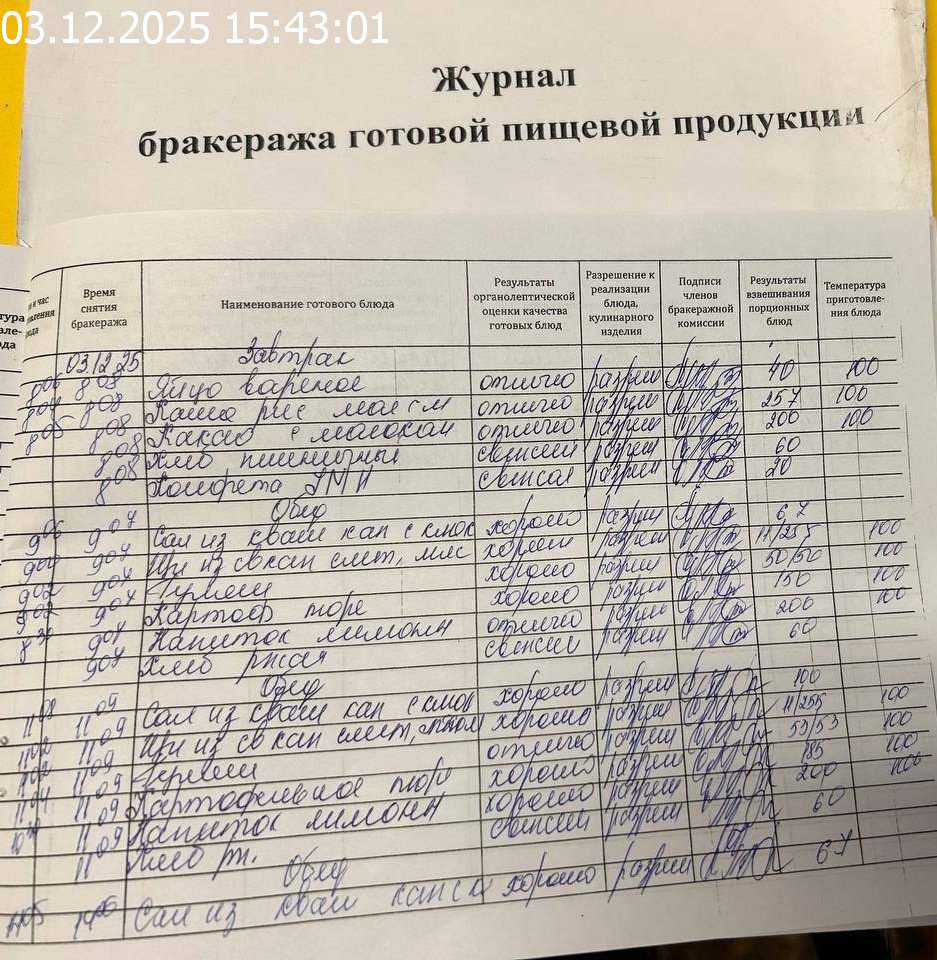 03.12.2025 15:43:01
Журнал
бракеража готовой пищевой продукции
Время снятия бракеража
Наименование готового блюда
Результаты органолептической оценки качества готовых блюд
Разрешение к реализации блюда, кулинарного изделия
Подписи членов бракеражной комиссии
Результаты взвешивания порционных блюд
Температура приготовле-ния блюда
03.12.25 Завтрак
8 06 8 08 Яйцо вареное отлично разреш 40 100
8 08 Каша рис мол см отлично разреш 257 100
8 05 8 08 Какао с молоком отлично разреш 200 100
8 08 Хлеб пшеничный свежий разреш 60
8 08 Конфета свежая разреш 20
Обед
9 06 9 07 Сал из кваш кап с хорошо разреш 67
9 07 Щи из св кап смет, мяс хорошо разреш 11/255 100
9 02 9 07 хорошо разреш 50/50 100
9 02 9 07 Картоф пюре хорошо разреш 150 100
8 30 9 07 Напиток лимонн отлично разреш 200 100
9 07 Хлеб ржан свежий разреш 60
Обед
11 08 11 09 Сал из кваш кап с хорошо разреш 100
11 02 11 09 Щи из св кап смет, хорошо разреш 11/255 100
11 02 11 09 отлично разреш 53/53 100
11 04 11 09 Картофельное пюре хорошо разреш 185 100
11 09 Напиток лимонн хорошо разреш 200 100
11 09 Хлеб рж. свежий разреш 60
Обед
Сал из кваш кап хорошо разреш 67